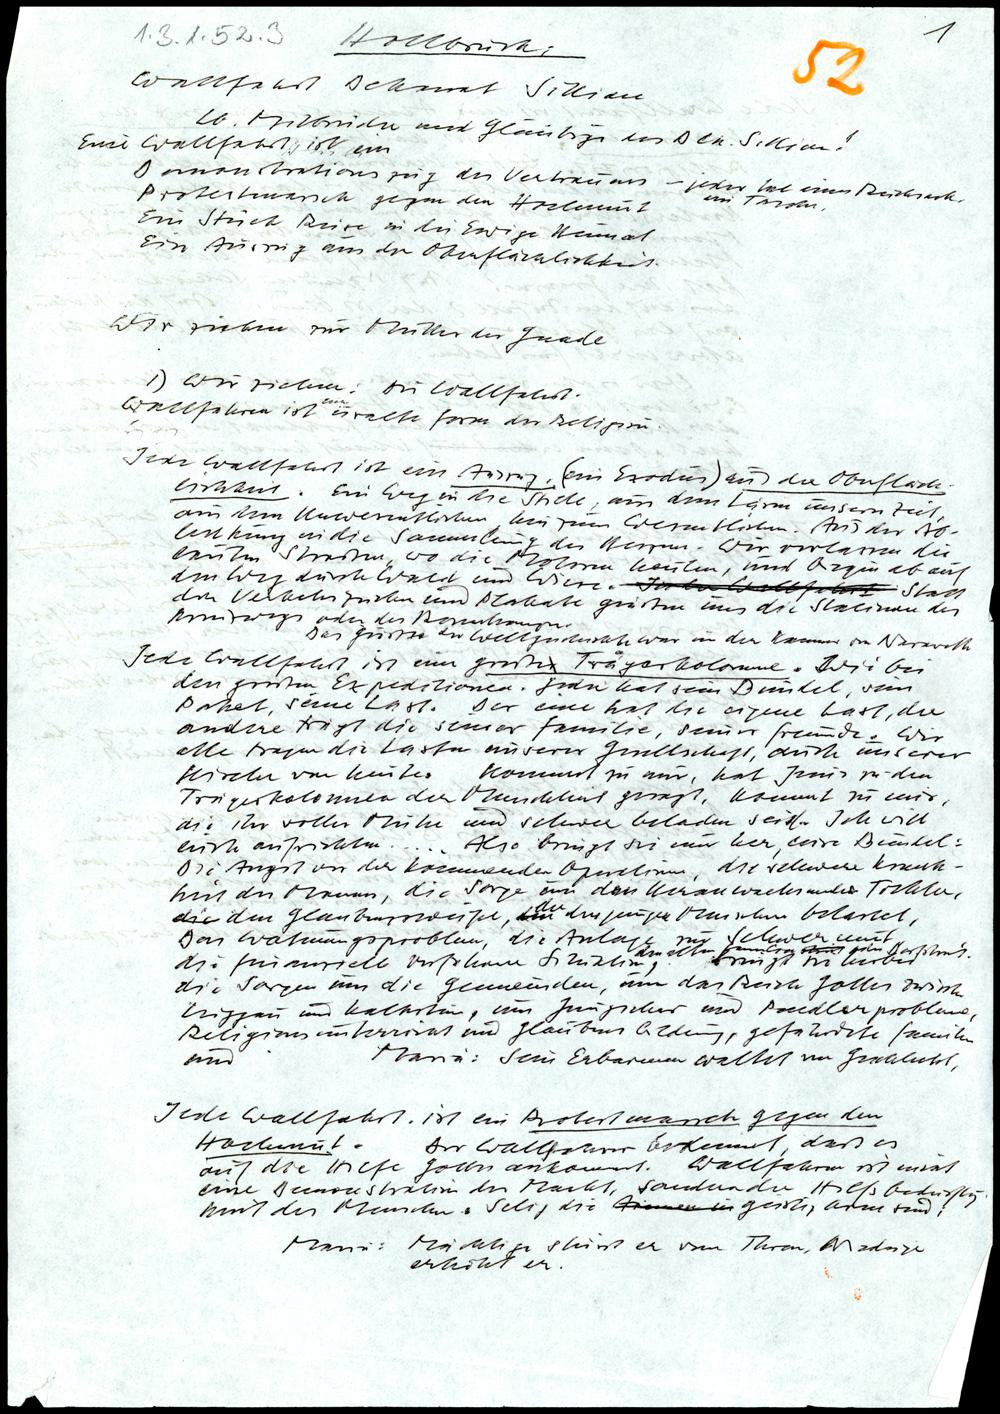 1.3.1.52.3
1
52
Hollbruck:
Wallfahrt Dekanat Sillian
Lb. Mitbrüder und Gläubige des Dek. Sillian!
Eine Wallfahrt ist ein
Demonstrationszug des Vertrauens – jeder hat einen Rucksack.
Protestmarsch gegen den Hochmut
Ein Stück Reise in die Ewige Heimat
Ein Auszug aus der Oberflächlichkeit.
Wir ziehen zur Mutter der Gnade
1) Wir ziehen: die Wallfahrt.
Wallfahren ist eine uralte Form der Religion.
Jede Wallfahrt ist ein Auszug, (ein Exodus) aus der Oberfläch-
lichkeit. Ein Weg in die Stille, aus dem Lärm unserer Zeit,
aus dem Unwesentlichen hin zum Wesentlichen. Aus der Ab-
lenkung in die Sammlung des Herzens. Wir verlassen die
lauten Straßen, wo die Motoren heulen, und biegen ab auf
den Weg durch Wald und Wiese. In der Wallfahrt Statt
der Verkehrszeichen und Plakate grüßen uns die Stationen des
Kreuzwegs oder des Rosenkranzes.
Das Größte der Weltgeschichte war in der Kammer von Nazareth
Jede Wallfahrt ist eine große Trägerkolonne. Wie bei
den großen Expeditionen. Jeder hat sein Bündel, sein
Paket, seine Last. Der eine hat die eigene Last, der
andere trägt die seiner Familie, seiner Freunde. Wir
alle tragen die Lasten unserer Gesellschaft, auch unserer
Kirche von heute. Kommet zu mir, hat Jesus zu den
Trägerkolonnen der Menschheit gesagt, kommt zu mir,
die ihr voller Mühe und schwer beladen seid. Ich will
euch aufrichten.... Also bringt sie nur her, eure Bündel:
Die Angst vor der kommenden Operation, die schwere Krank-
heit des Mannes, die Sorge um die heranwachsende Tochter,
die den Glaubenszweifel, der den jungen Menschen belastet,
Das Wohnungsproblem, die Anlage zur Schwermut
die finanziell verfahrene Situation, bringt sie hierher
die Sorgen um die Gemeinden, um das Reich Gottes zwischen
und Kalkstein, um Jungschar und Pendlerprobleme,
Religionsunterricht und Glaubensbildung, gefährdete Familien
und Maria: Sein Erbarmen waltet von Geschlecht,
Jede Wallfahrt ist ein Protestmarsch gegen den
Hochmut. Der Wallfahrer bekennt, dass es
auf die Hilfe Gottes ankommt. Wallfahren ist nicht
eine Demonstration der Macht, sondern der Hilfsbedürftig-
keit des Menschen. Selig die Armen im geistig arm sind!
Maria: Mächtige stürzt er vom Thron, Niedrige
erhöht er.